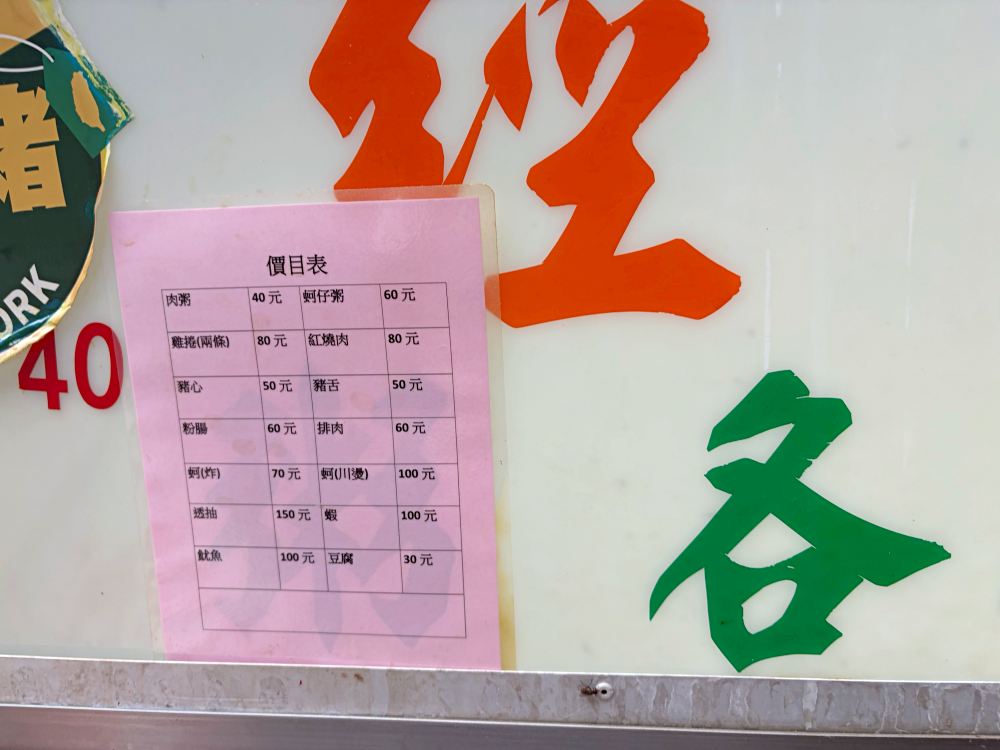 經
豬
ORK
40
價目表
肉粥 40 元 蚵仔粥 60 元
雞捲(兩條) 80 元 紅燒肉 80 元
豬心 50 元 豬舌 50 元
粉腸 60 元 排肉 60 元
蚵(炸) 70 元 蚵(川燙) 100 元
透抽 150 元 蝦 100 元
魷魚 100 元 豆腐 30 元
各
粥